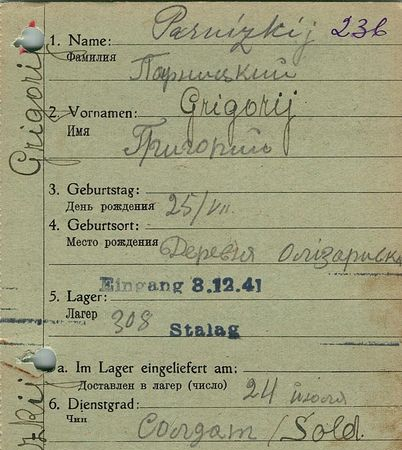 1. Name: Parnizkij 236
Фамилия Парницкий
2. Vornamen: Grigorij
Имя Григорий
3. Geburtstag:
День рождения 25/VII
4. Geburtsort:
Место рождения Деревня
Eingang 8.12.41
5. Lager: 308
Лагер Stalag
a. Im Lager eingeliefert am:
Доставлен в лагер (число) 24 июля
6. Dienstgrad:
Чин Солдат / Sold.
Grigorij
zkij